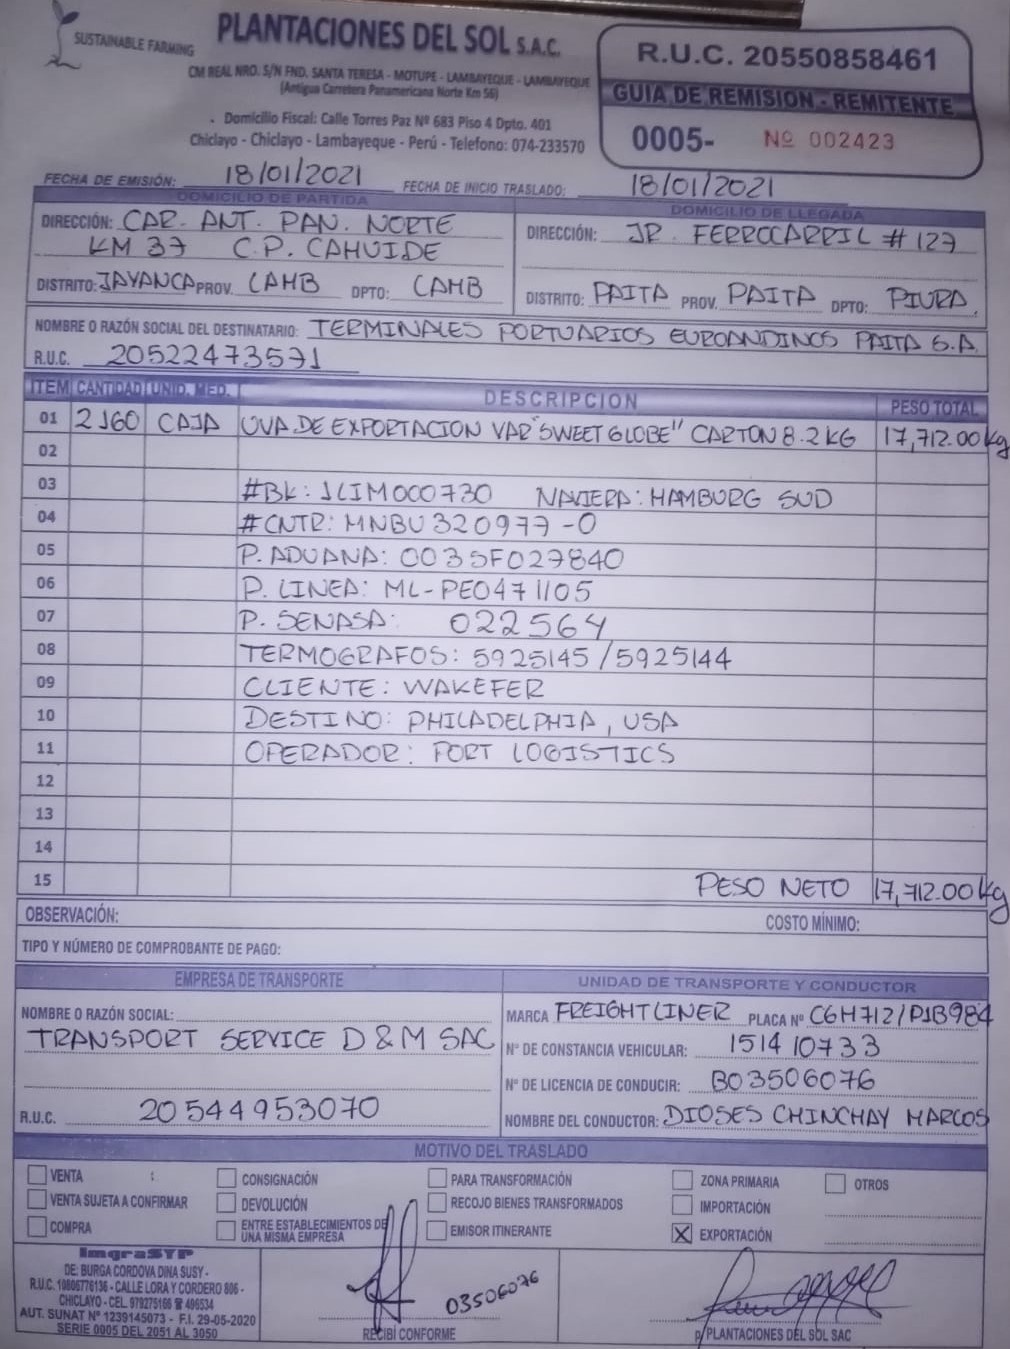 SUSTAINABLE FARMING
PLANTACIONES DEL SOL S.A.C.
CM REAL NRO. S/N FND. SANTA TERESA - MOTUPE - LAMBAYEQUE - LAMBAYEQUE
(Antigua Carretera Panamericana Norte Km 56)
. Domicilio Fiscal: Calle Torres Paz Nº 683 Piso 4 Dpto. 401
Chiclayo - Chiclayo - Lambayeque - Perú - Telefono: 074-233570
R.U.C. 20550858461
GUIA DE REMISION - REMITENTE
0005- Nº 002423
FECHA DE EMISIÓN: 18/01/2021 FECHA DE INICIO TRASLADO: 18/01/2021
DOMICILIO DE PARTIDA
DIRECCIÓN: CAR. ANT. PAN. NORTE
KM 37 C.P. CAHUIDE
DISTRITO: JAYANCA PROV. LAMB DPTO: LAMB
DOMICILIO DE LLEGADA
DIRECCIÓN: JR. FERROCARRIL # 127
DISTRITO: PAITA PROV. PAITA DPTO: PIURA.
NOMBRE O RAZÓN SOCIAL DEL DESTINATARIO: TERMINALES PORTUARIOS EUROANDINOS PAITA S.A.
R.U.C. 20522473571
ITEM CANTIDAD UNID. MED. DESCRIPCION PESO TOTAL
01 2160 CAJA UVA DE EXPORTACION VAR "SWEET GLOBE" CARTON 8.2 KG 17,712.00 kg
02
03 #BK: 1LIM000730 NAVIERA: HAMBURG SUD
04 #CNTR: MNBU 320977-0
05 P. ADUANA: 0035F027840
06 P. LINEA: ML-PE0471105
07 P. SENASA: 022564
08 TERMOGRAFOS: 5925145/5925144
09 CLIENTE: WAKEFER
10 DESTINO: PHILADELPHIA, USA
11 OPERADOR: PORT LOGISTICS
12
13
14
15 PESO NETO 17,712.00 kg
OBSERVACIÓN: COSTO MÍNIMO:
TIPO Y NÚMERO DE COMPROBANTE DE PAGO:
EMPRESA DE TRANSPORTE
NOMBRE O RAZÓN SOCIAL:
TRANSPORT SERVICE D & M SAC
R.U.C. 20544953070
UNIDAD DE TRANSPORTE Y CONDUCTOR
MARCA FREIGHTLINER PLACA Nº C6H712/P1B984
Nº DE CONSTANCIA VEHICULAR: 151410733
Nº DE LICENCIA DE CONDUCIR: B03506076
NOMBRE DEL CONDUCTOR: DIOSES CHINCHAY MARCOS
MOTIVO DEL TRASLADO
VENTA CONSIGNACIÓN PARA TRANSFORMACIÓN ZONA PRIMARIA OTROS
VENTA SUJETA A CONFIRMAR DEVOLUCIÓN RECOJO BIENES TRANSFORMADOS IMPORTACIÓN
COMPRA ENTRE ESTABLECIMIENTOS DE UNA MISMA EMPRESA EMISOR ITINERANTE X EXPORTACIÓN
ImgraSYP
DE: BURGA CORDOVA DINA SUSY -
R.U.C. 10806776136 - CALLE LORA Y CORDERO 806 -
CHICLAYO - CEL. 979275166 ☎ 496534
AUT. SUNAT Nº 1239145073 - F.I. 29-05-2020
SERIE 0005 DEL 2051 AL 3050
03506076
RECIBÍ CONFORME
p/PLANTACIONES DEL SOL SAC